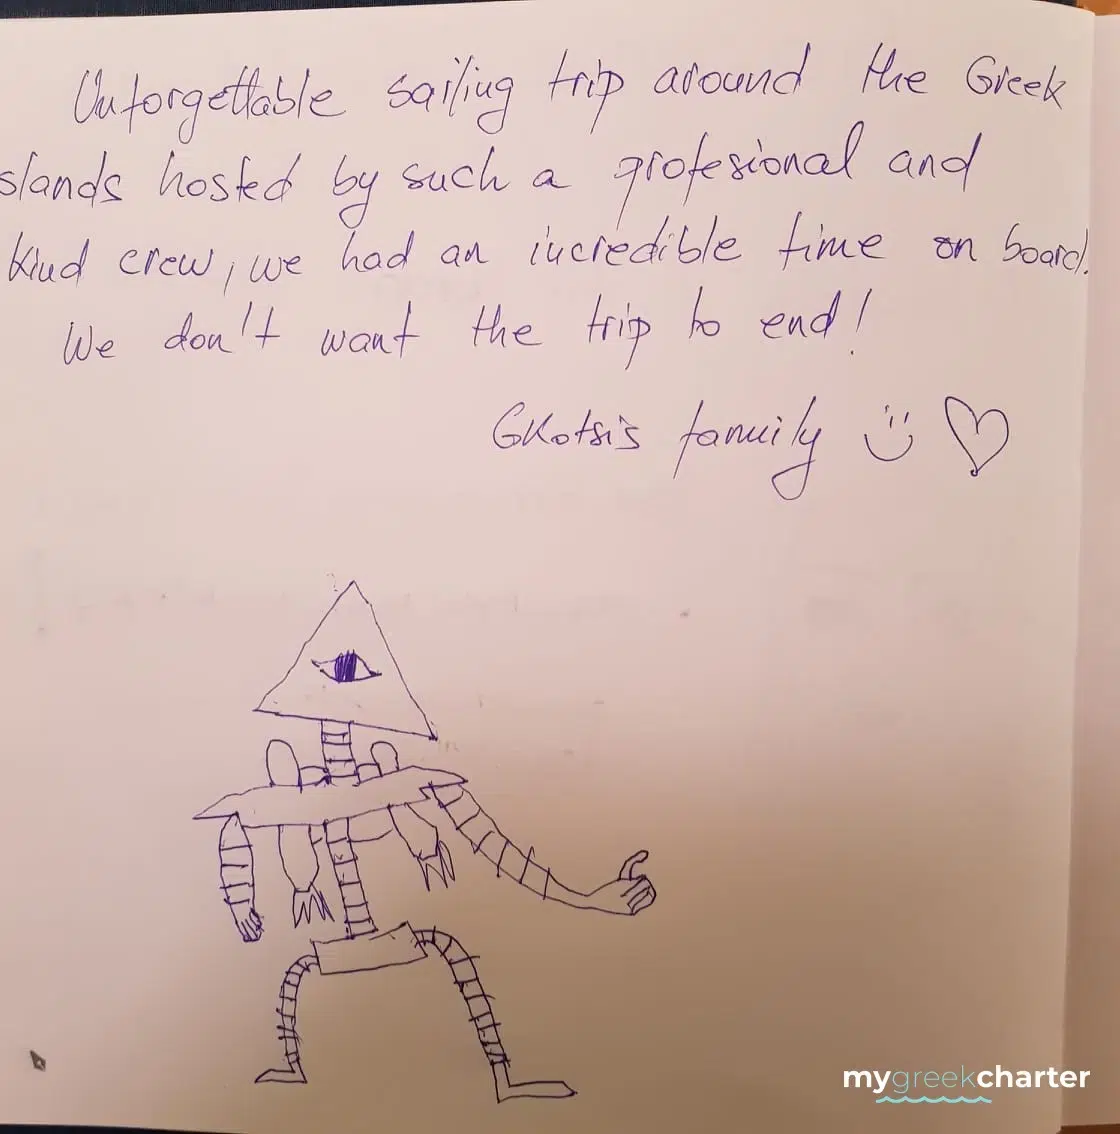 Unforgettable sailing trip around the Greek
slands hosted by such a profesional and
kind crew, we had an incredible time on board.
We don't want the trip to end!
Gkotsis family
mygreekcharter